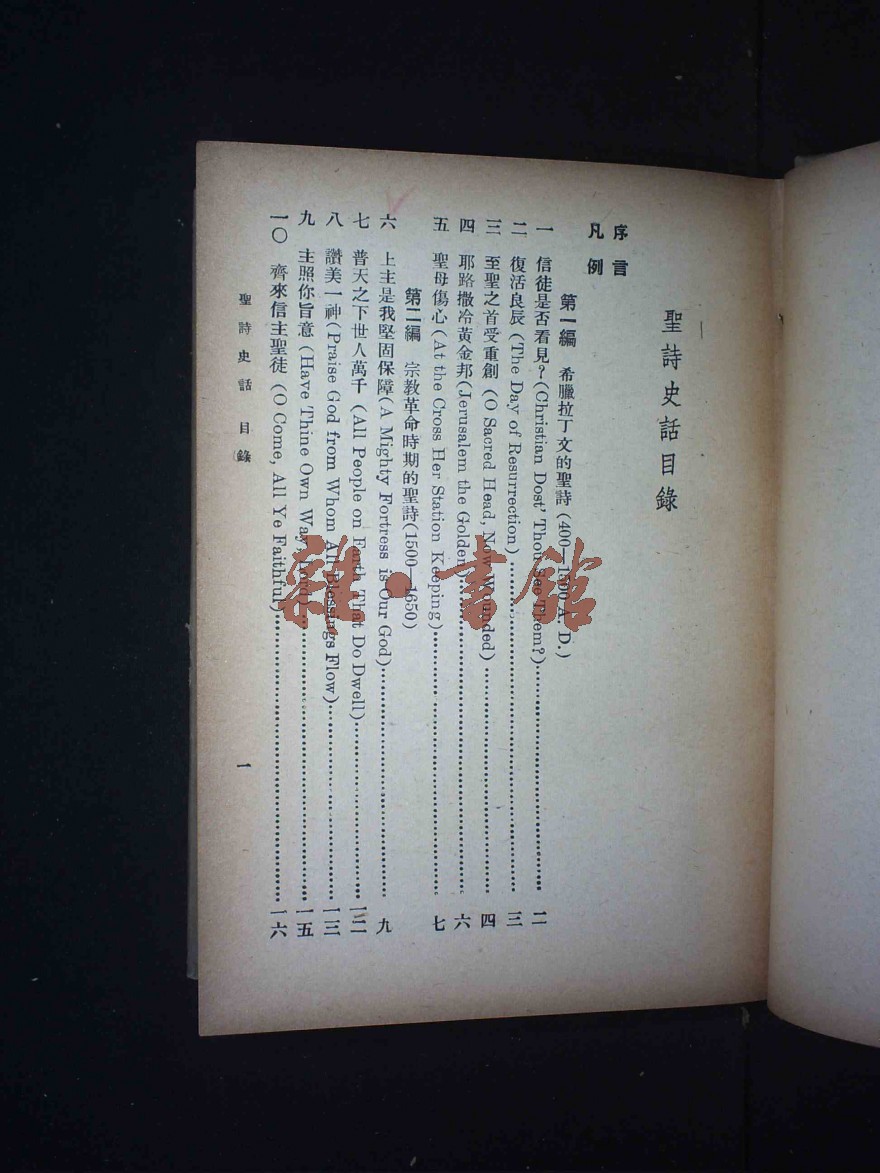 聖詩史話目錄
序言
凡例
第一編 希臘拉丁文的聖詩(400—1500 A. D.)
一 信徒是否看見?(Christian Dost' Thou See Them?)…………二
二 復活良辰(The Day of Resurrection)…………三
三 至聖之首受重創(O Sacred Head, Now Wounded)…………四
四 耶路撒冷黃金邦(Jerusalem the Golden)…………六
五 聖母傷心(At the Cross Her Station Keeping)…………七
第二編 宗教革命時期的聖詩(1500—1650)
六 上主是我堅固保障(A Mighty Fortress is Our God)…………九
七 普天之下世人萬千(All People on Earth That Do Dwell)…………一二
八 讚美一神(Praise God from Whom All Blessings Flow)…………一三
九 主照你旨意(Have Thine Own Way, Lord)…………一五
一〇 齊來信主聖徒(O Come, All Ye Faithful)…………一六
聖詩史話 目錄
一
雜·書館